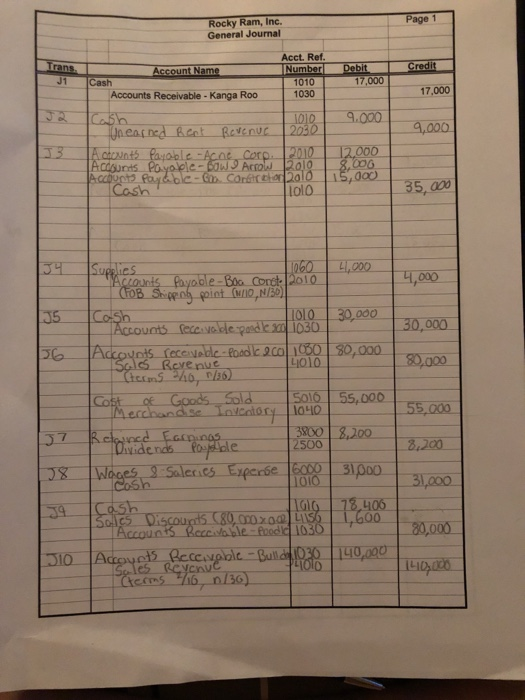 Rocky Ram, Inc.
General Journal
Page 1
Trans. Account Name Acct. Ref. Number Debit Credit
J1 Cash 1010 17,000
Accounts Receivable - Kanga Roo 1030 17,000
J2 Cash 1010 9.000
Unearned Rent Revenue 2030 9,000
J3 Accounts Payable - Acne Corp. 2010 12,000
Accounts Payable - Bow & Arrow 2010 8,000
Accounts Payable - Constrctor 2010 15,000
Cash 1010 35,000
J4 Supplies 1060 4,000
Accounts Payable - Boa Const. 2010 4,000
(FOB Shipping point (n/10, N/30)
J5 Cash 1010 30,000
Accounts receivable - poodle 1030 30,000
J6 Accounts receivable - Poodle & co 1030 80,000
Sales Revenue 4010 80,000
(terms 2/10, n/30)
Cost of Goods Sold 5010 55,000
Merchandise Inventory 1040 55,000
J7 Retained Earnings 3800 8,200
Dividends Payable 2500 8,200
J8 Wages & Saleries Expense 6000 31,000
Cash 1010 31,000
J9 Cash 1010 78,400
Sales Discounts (80,000x 4150 1,600
Accounts Receivable - Poodle 1030 80,000
J10 Accounts Receivable - 1030 140,000
Sales Revenue 4010 140,000
(terms 2/10, n/30)